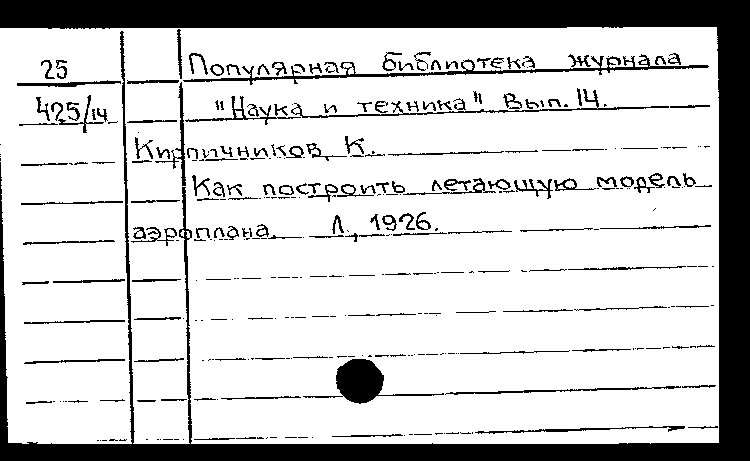 25 Популярная библиотека журнала
425/14 "Наука и техника". Вып. 14.
Кирпичников, К.
Как построить летающую модель
аэроплана. Л., 1926.